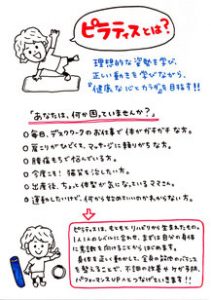 ピラティスとは?
理想的な姿勢を学び、
正しい動きを学びながら、
"健康な心とカラダ"を目指す!!
「あなたは、何か困っていませんか?」
○毎日、デスクワークのお仕事で体がガチガチな方。
○肩こりがひどくて、マッサージに頼りがちな方。
○腰痛もちで悩んでいる方。
○今度こそ!猫背を治したい方。
○出産後、ちょっと体型が気になっているママさん。
○運動したいけど、何から始めていいのかわからない方。
ピラティスは、もともとリハビリから生まれたもの。
1人1人のレベルに合わせ、まずは自分の身体
に意識を向けることからはじめます。
身体を正しく動かして、全身の筋肉のバランス
を整えることで、不調の改善やケガ予防、
パフォーマンスUPへとつなげていきます!